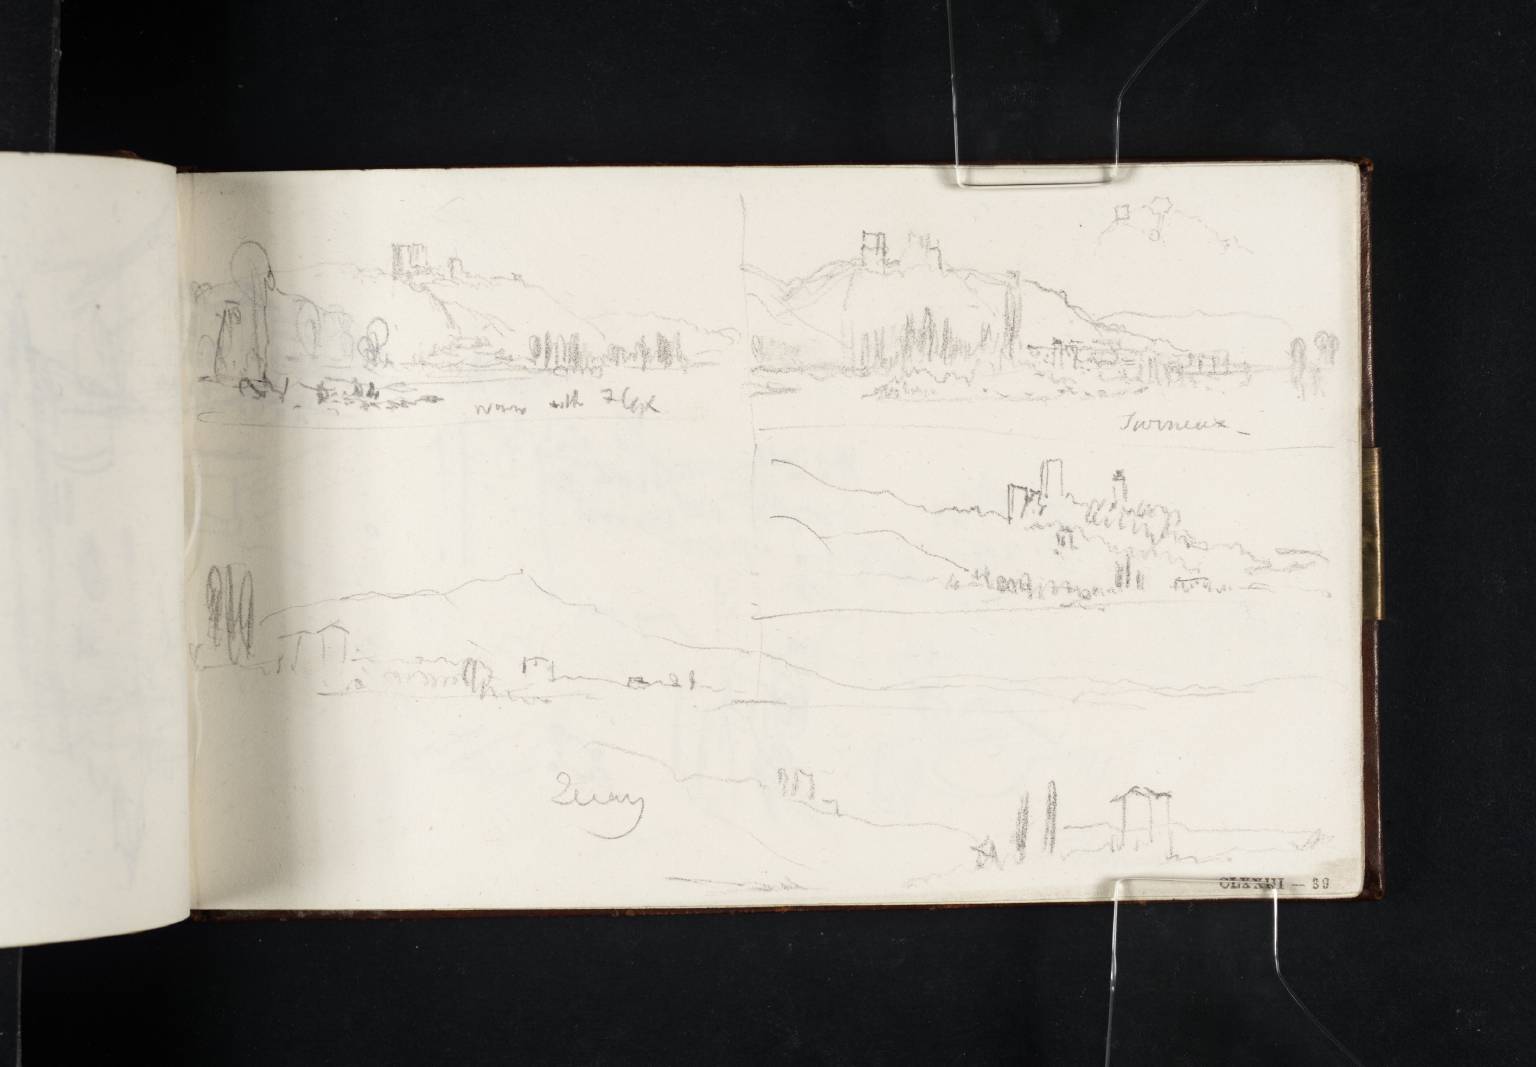 with Flax
Turneux
Quay
CLXXIII — 39